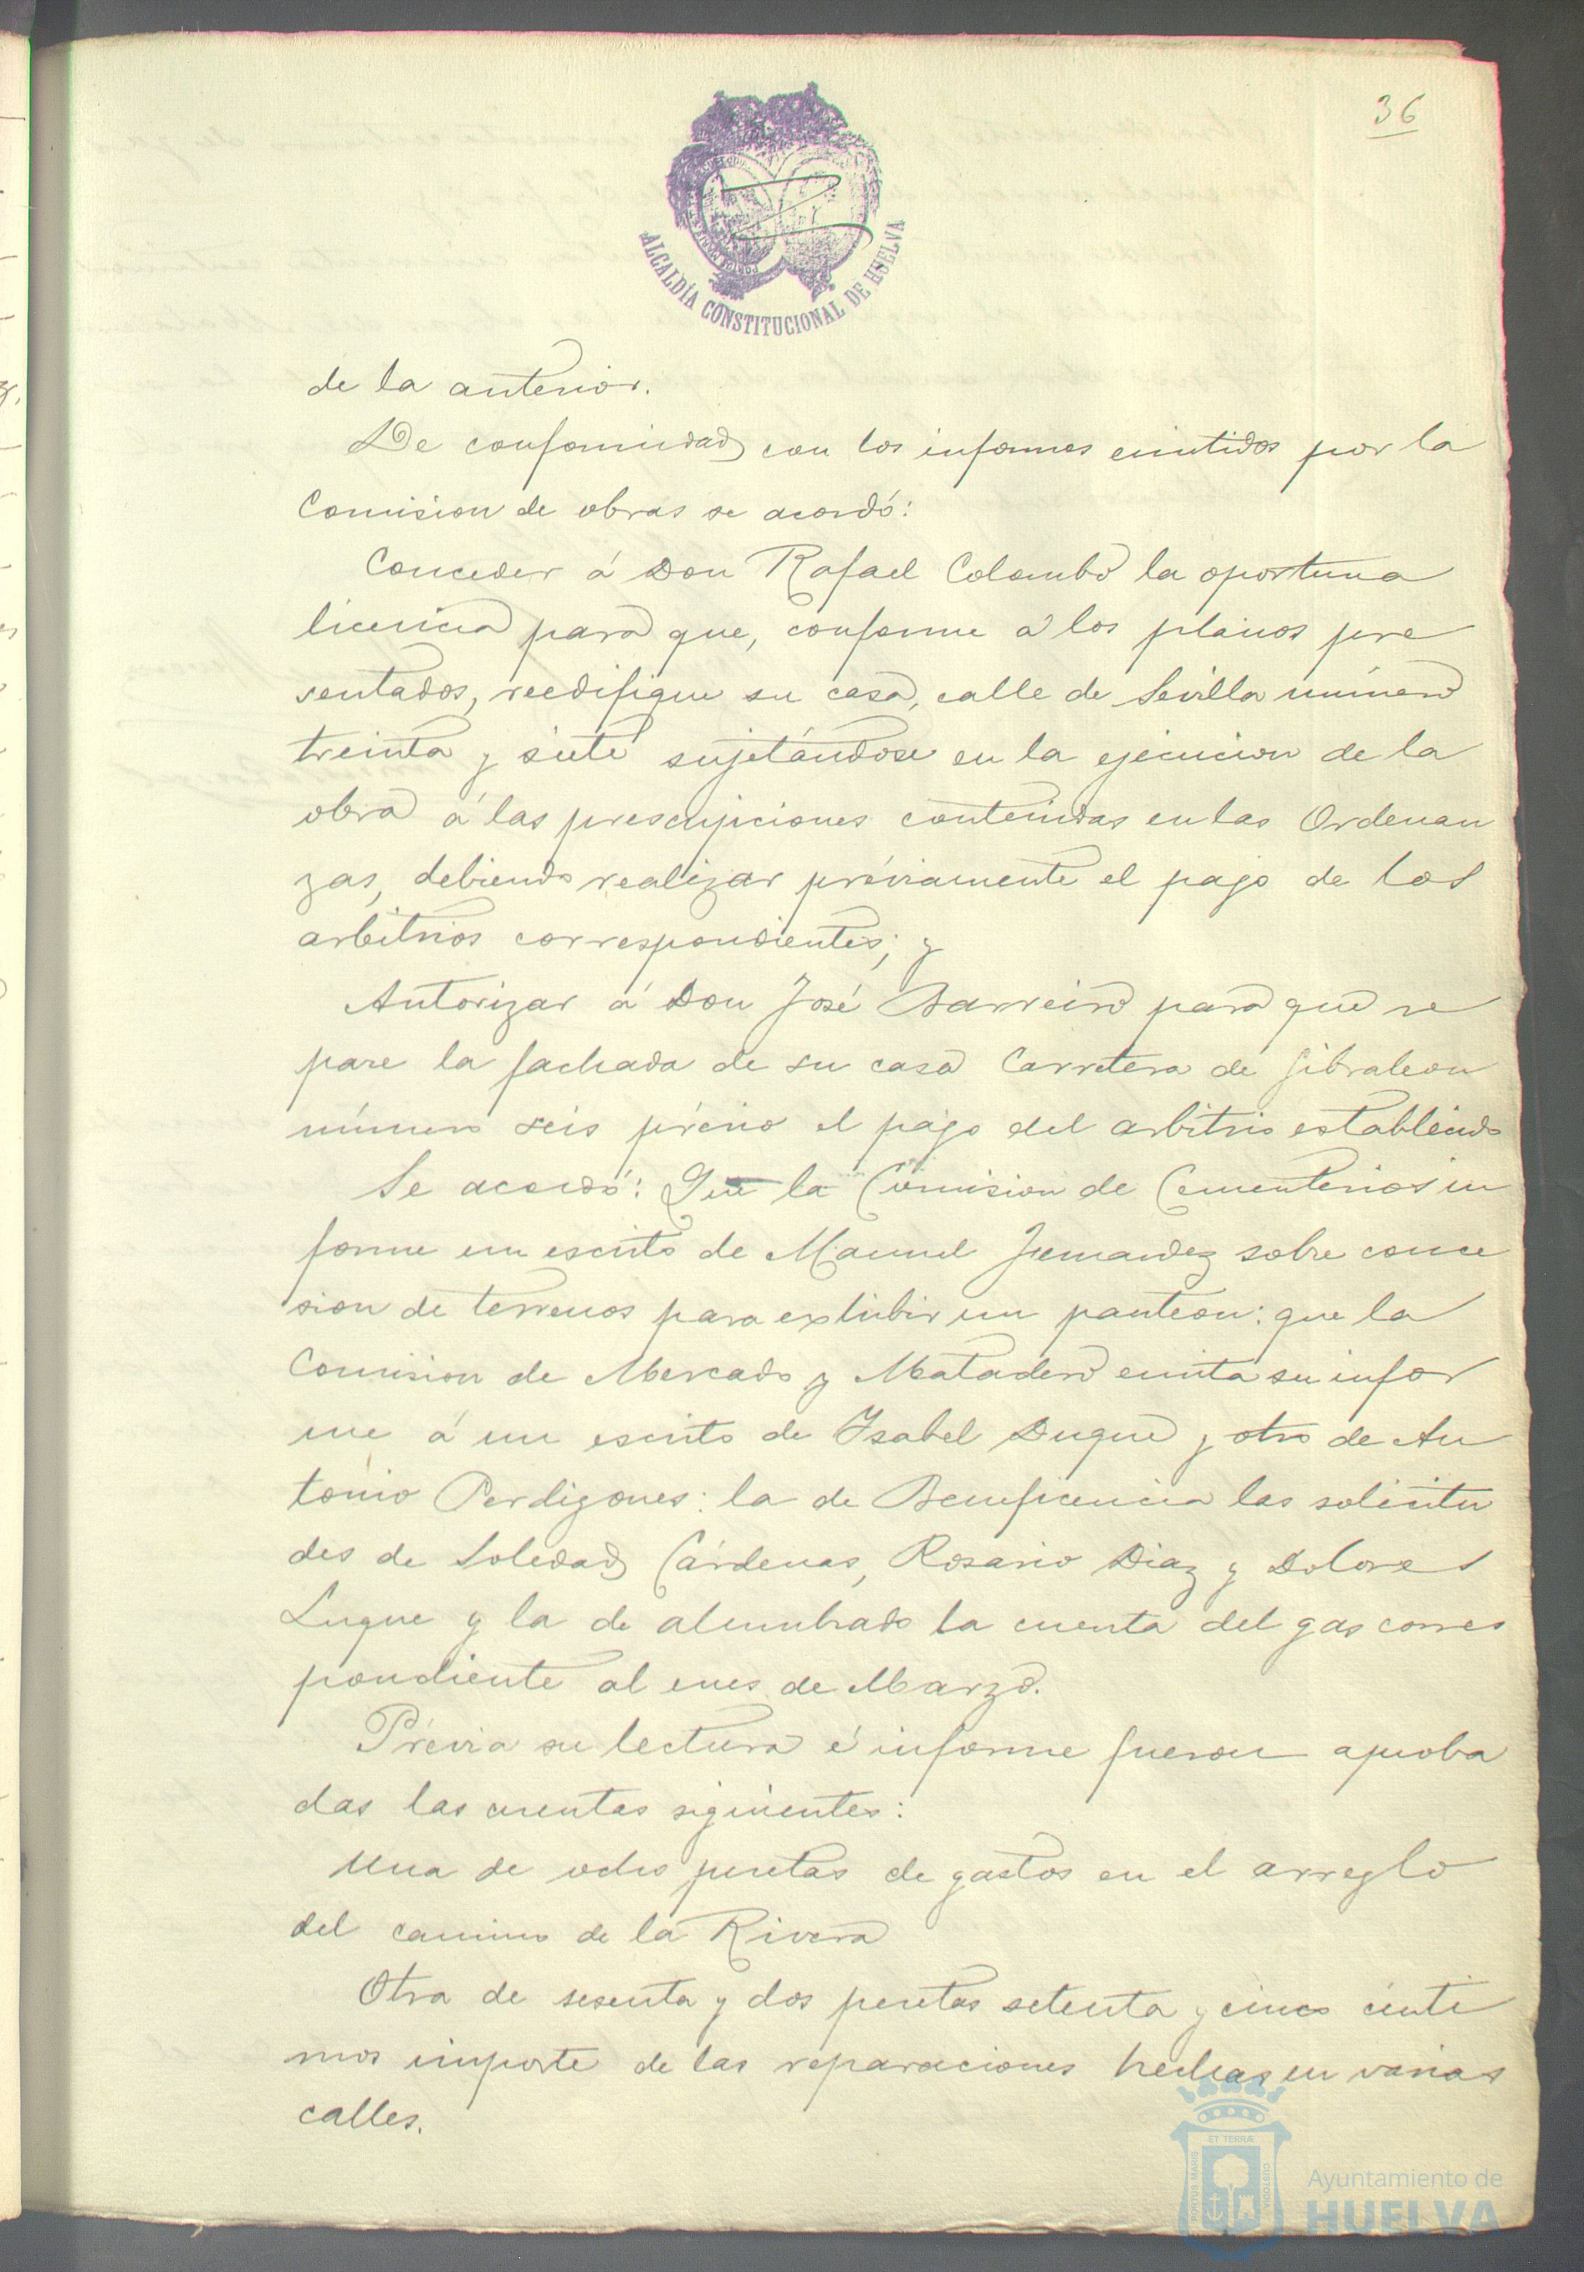 36
ALCALDÍA CONSTITUCIONAL DE HUELVA
de la anterior.
De conformidad con los informes emitidos por la
Comision de obras se acordó:
Conceder á Don Rafael Colombo la oportuna
licencia para que, conforme á los planos pre
sentados, reedifique su casa, calle de Sevilla número
treinta y siete sujetándose en la ejecucion de la
obra á las prescripciones contenidas en las Ordenan
zas, debiendo realizar préviamente el pago de los
arbitrios correspondientes; y
Autorizar á Don José Barreiro para que re
pare la fachada de su casa Carretera de Gibraleon
número seis prévio el pago del arbitrio establecido
Se acordó: Que la Comision de Cementerios in
forme un escrito de Manuel Fernandez sobre conce
sion de terrenos para exhibir un panteon: que la
Comision de Mercado y Matadero emita su infor
me á un escrito de Ysabel Duque y otro de An
tonio Perdigones: la de Beneficencia las solicitu
des de Soledad Cárdenas, Rosario Diaz y Dolores
Luque y la de alumbrado la cuenta del gas corres
pondiente al mes de Marzo.
Prévia su lectura é informe fueron aproba
das las cuentas siguientes:
Una de ocho pesetas de gastos en el arreglo
del camino de la Rivera
Otra de sesenta y dos pesetas setenta y cinco cénti
mos importe de las reparaciones hechas en varias
calles.
PORTUS MARIS ET TERRÆ CUSTODIA
Ayuntamiento de
HUELVA